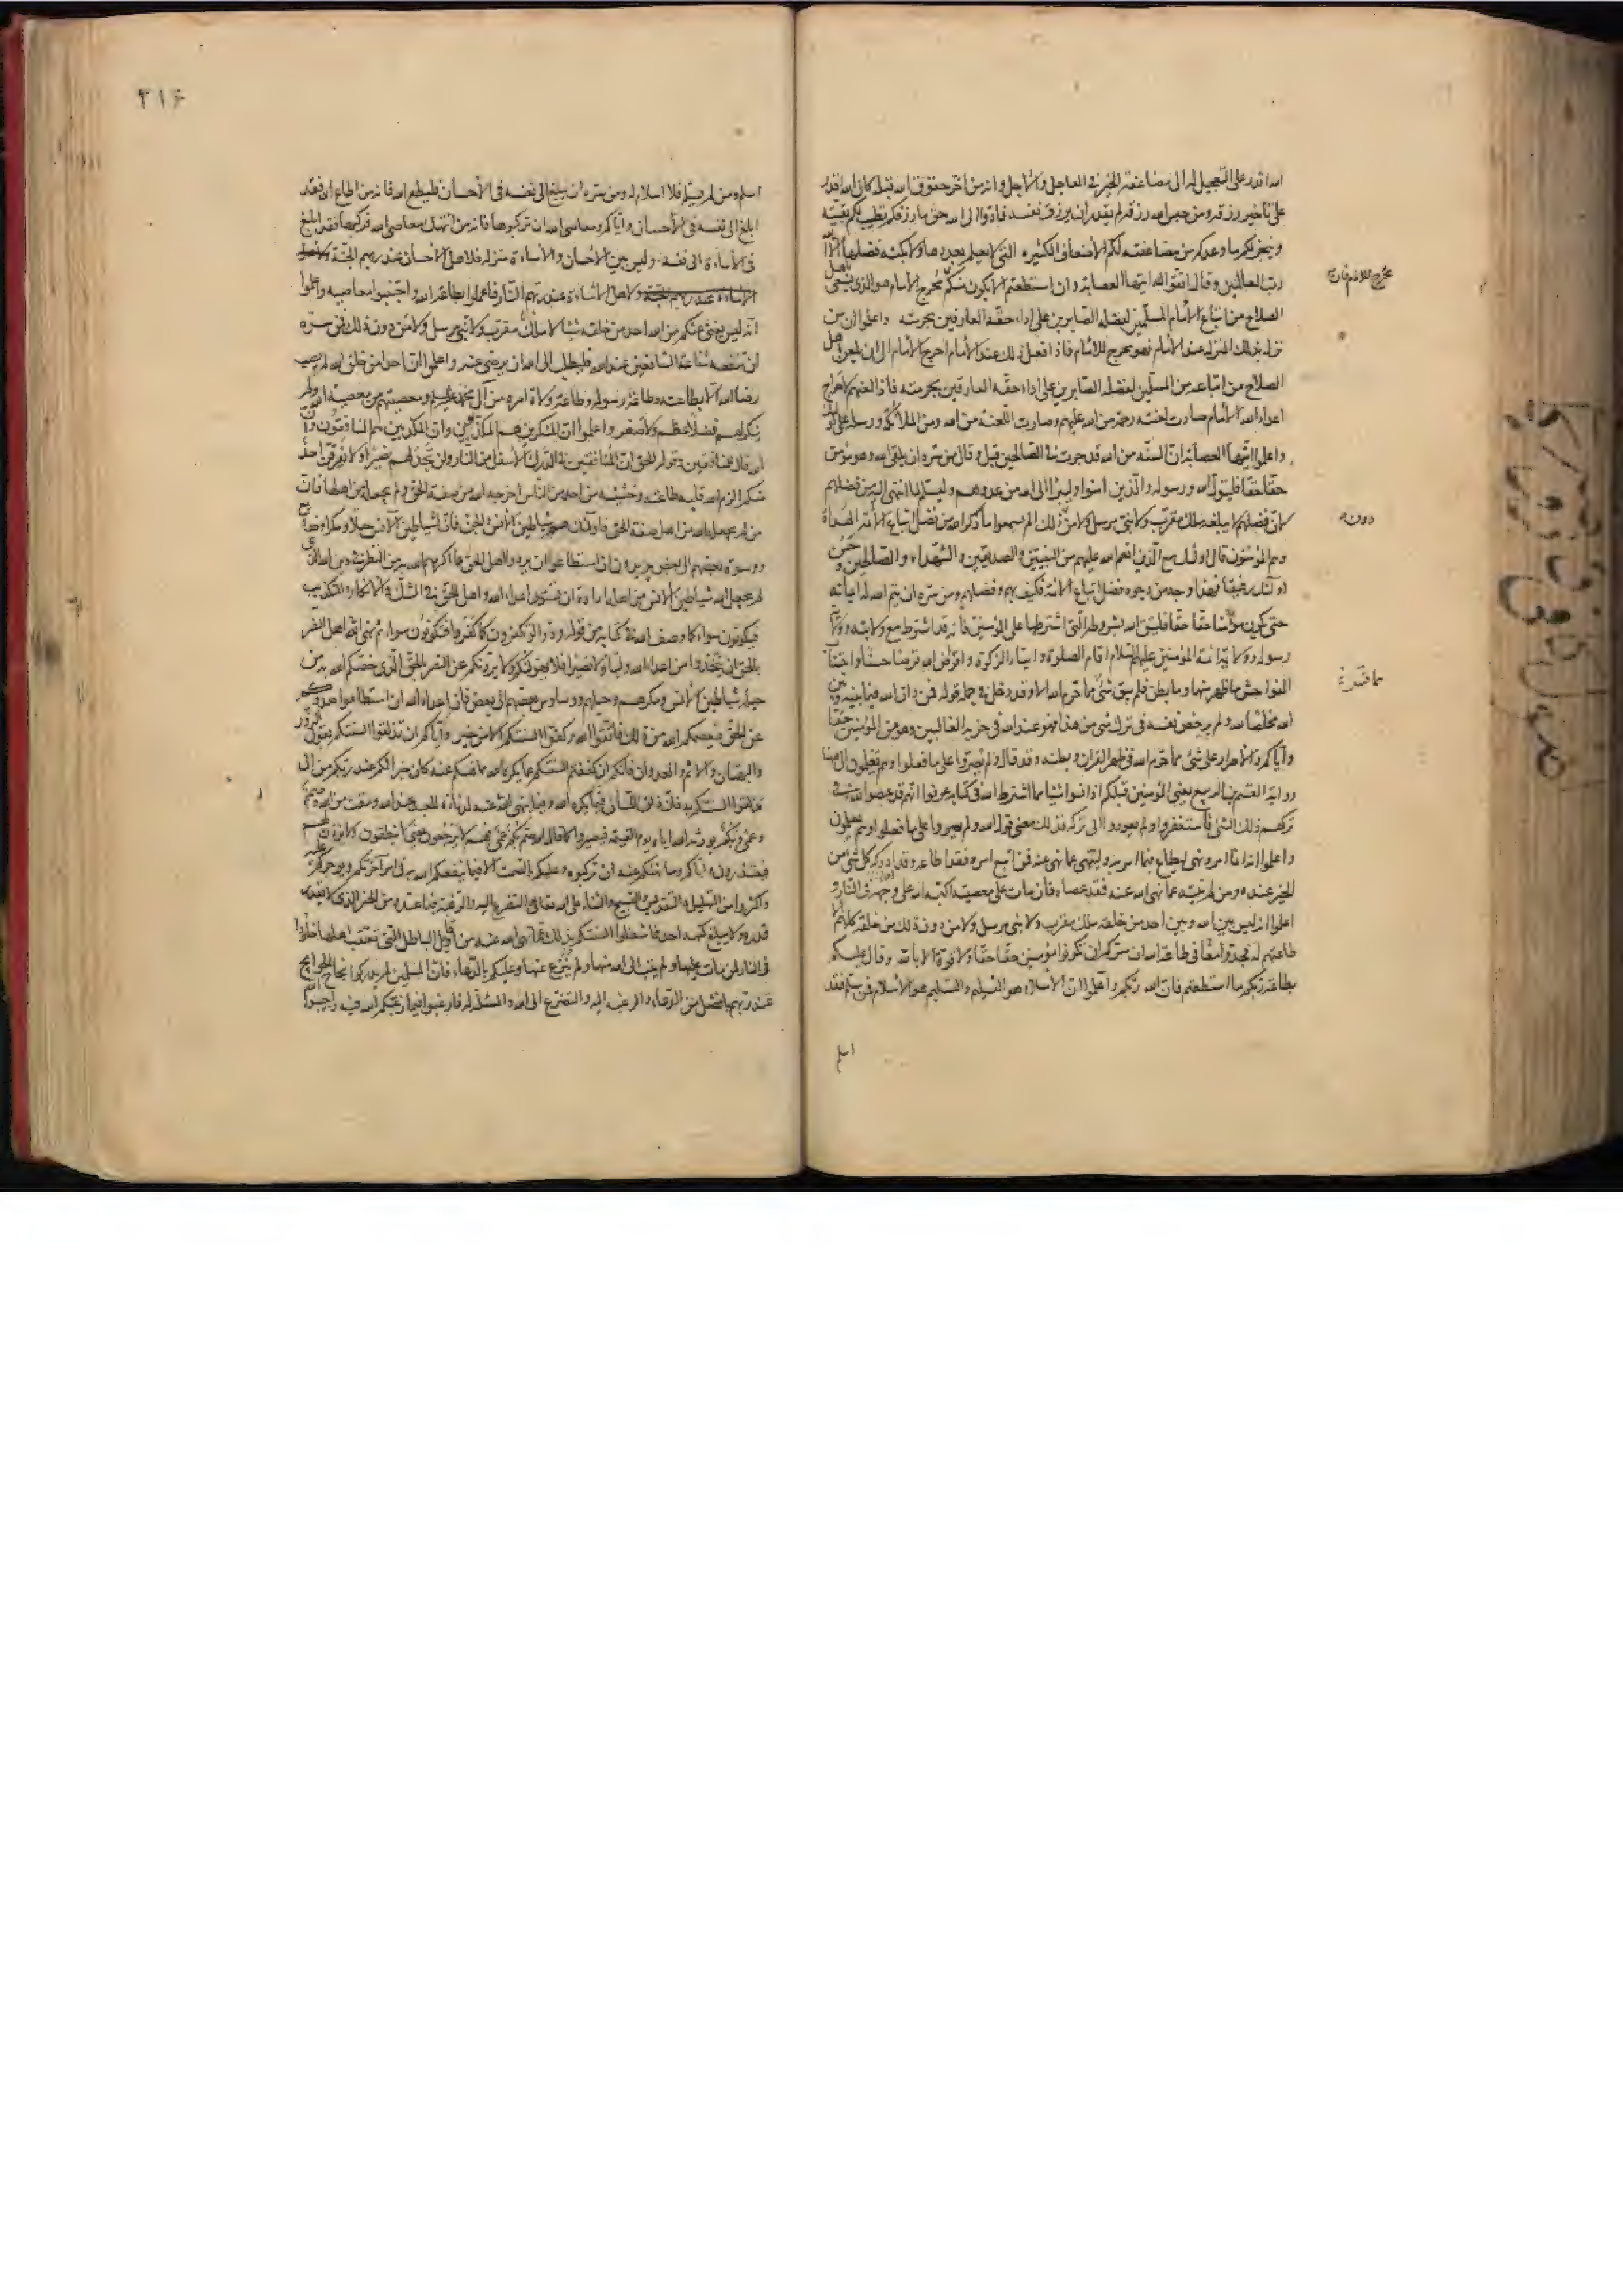 الله اقدر على التعجيل له الى مضاعفة الخير فى العاجل والاجل وانه من اخر حقوق الله قبله كان الله اقدر
على تأخير رزقه ومن حبس الله رزقه لم يقدر ان يرزق نفسه فادوا الى الله حق ما رزقكم يطيب لكم بقيته
وينجز لكم ما وعدكم من مضاعفته لكم الاضعاف الكثيرة التى لا يعلم بعددها ولا بكنه فضلها الا الله
رب العالمين وقال اتقوا الله ايتها العصابة وان استطعتم ان لا يكون منكم محرج الامام هو الذى يسعى باهل
الصلاح من اتباع الامام المسلمين لفضله الصابرين على اداء حقه العارفين بحرمته واعلموا ان من
نزل بذلك المنزل عند الامام فهو محرج للامام فاذا فعل ذلك عند الامام احرج الامام الى ان يلعن اهل
الصلاح من اتباعه من المسلمين لفضله الصابرين على اداء حقه العارفين بحرمته فاذا لعنهم لاحراج
اعداء الله الامام صارت لعنته رحمة من الله عليهم وصارت اللعنة من الله ومن الملائكة ورسله على اولئك
واعلموا ايتها العصابة ان السنة من الله قد جرت فى الصالحين قبل وقال من سره ان يلقى الله وهو مؤمن
حقا حقا فليتول الله ورسوله والذين امنوا وليبرأ الى الله من عدوهم وليسلم لما انتهى اليه من فضلهم
لان فضلهم لا يبلغه ملك مقرب ولا نبى مرسل ولا من ذلك الم تسمعوا ما ذكر الله من فضل اتباع الائمة الهداة
وهم المؤمنون قال اولئك مع الذين انعم الله عليهم من النبيين والصديقين والشهداء والصالحين وحسن
اولئك رفيقا فهذا وجه من وجوه فضل اتباع الائمة فكيف بهم وفضلهم ومن سره ان يتم الله له ايمانه
حتى يكون مؤمنا حقا حقا فليف لله بشروطه التى اشترطها على المؤمنين فانه قد اشترط مع ولايته وولاية
رسوله وولاية ائمة المؤمنين عليهم السلام اقام الصلوة وايتاء الزكوة واقراض الله قرضا حسنا واجتناب
الفواحش ما ظهر منها وما بطن فلم يبق شئ مما حرم الله الا وقد دخل فى جملة قوله فمن دان الله فيما بينه وبين
الله مخلصا لله ولم يرخص لنفسه فى ترك شئ من هذا فهو عند الله فى حزبه الغالبين وهو من المؤمنين حقا
واياكم والاصرار على شئ مما حرم الله فى ظهر القران وبطنه وقد قال ولم يصروا على ما فعلوا وهم يعلمون الى هنا
رواية القسم بن الربيع يعنى المؤمنين قبلكم اذا نسوا شيئا مما اشترط الله فى كتابه عرفوا انهم قد عصوا الله فى
تركهم ذلك الشئ فاستغفروا ولم يعودوا الى تركه فذلك معنى قول الله ولم يصروا على ما فعلوا وهم يعلمون
واعلموا انه انما امر ونهى ليطاع فيما امر به ولينتهى عما نهى عنه فمن اتبع امره فقد اطاعه وقد ادرك كل شئ من
الخير عنده ومن لم ينته عما نهى الله عنه فقد عصاه فان مات على معصيته اكبه الله على وجهه فى النار و
اعلموا انه ليس بين الله وبين احد من خلقه ملك مقرب ولا نبى مرسل ولا من دون ذلك من خلقه كلهم الا
طاعتهم له فجدوا فى طاعة الله ان سركم ان تكونوا مؤمنين حقا حقا ولا قوة الا بالله وقال عليكم
بطاعة ربكم ما استطعتم فان الله ربكم واعلموا ان الاسلام هو التسليم والتسليم هو الاسلام فمن سلم فقد
اسلم
دونه
مما فسره
٣١۶
اسلم ومن لم يسلم فلا اسلام له ومن سره ان يبلغ الى نفسه فى الاحسان فليطع الله فانه من اطاع الله فقد
ابلغ الى نفسه فى الاحسان واياكم ومعاصى الله ان تركبوها فانه من انتهك معاصى الله فركبها فقد ابلغ
فى الاساءة الى نفسه وليس بين الاحسان والاساءة منزلة فلاهل الاحسان عند ربهم الجنة ولاهل
الاساءة عند ربهم الجنة ولاهل الاساءة عند ربهم النار فاعملوا بطاعة الله واجتنبوا معاصيه واعلموا
انه ليس يغنى عنكم من الله احد من خلقه شيئا لا ملك مقرب ولا نبى مرسل ولا من دون ذلك فمن سره
ان تنفعه شفاعة الشافعين عند الله فليطلب الى الله ان يرضى عنه واعلموا ان احدا من خلق الله لم يصب
رضا الله الا بطاعته وطاعة رسوله وطاعة ولاة امره من آل محمد عليهم ومعصيتهم من معصية الله ولم
ينكر لهم فضلا عظم ولا صغر واعلموا ان المنكرين هم المكذبين وان المكذبين هم المنافقون وان
الله قال للمنافقين وقوله الحق ان المنافقين فى الدرك الاسفل من النار ولن تجد لهم نصيرا ولا يفرقن احد
منكم الزم الله قلبه طاعته وخشيته من احد من الناس اخرجه الله من صفة الحق ولم يجعله من اهلها فان
من لم يجعل الله من اهل صفة الحق فاولئك هم شياطين الانس والجن فان لشياطين الانس حيلا ومكرا وخدائع
ووسوسة بعضهم الى بعض يريدون ان استطاعوا ان يردوا اهل الحق عما اكرمهم الله به من النظر فى دين الله الذى
لم يجعل الله شياطين الانس من اهله ارادة ان يستوى اعداء الله واهل الحق فى الشك والانكار والتكذيب
فيكونون سواء كما وصف الله فى كتابه من قوله ودوا لو تكفرون كما كفروا فتكونون سواء ثم نهى الله اهل النصر
بالحق ان يتخذوا من اعداء الله وليا ولا نصيرا فلا يهولنكم ولا يردنكم عن النصر بالحق الذى خصكم الله به من
حيلة شياطين الانس ومكرهم وحيلهم ووساوس بعضهم الى بعض فان اعداء الله ان استطاعوا صدوكم
عن الحق فيعصمكم الله من ذلك فاتقوا الله وكفوا السنتكم الا من خير واياكم ان تذلقوا السنتكم بقول الزور
والبهتان والاثم والعدوان فانكم ان كففتم السنتكم عما يكره الله مما نهيكم عنه كان خيرا لكم عند ربكم من ان
تذلقوا السنتكم به فان ذلق اللسان فيما يكره الله وفيما ينهى عنه مرداة للعبد عند الله ومقت من الله وصم
وعمى وبكم يورثه الله اياه يوم القيمة فيصيروا كما قال الله صم بكم عمى فهم لا يرجعون يعنى لا ينطقون ولا يؤذن لهم
فيعتذرون اياكم وما نهيكم عنه ان تركبوه وعليكم بالصمت الا فيما ينفعكم الله به فى امر آخرتكم ويوجركم عليه
واكثروا من التهليل والتقديس والتسبيح والثناء على الله تعالى والتضرع اليه والرغبة فيما عنده من الخير الذى لا يقدر
قدره ولا يبلغ كنهه احد فاشغلوا السنتكم بذلك عما نهى الله عنه من اقاويل الباطل التى تعقب اهلها خلودا
فى النار لمن مات عليها ولم يتب الى الله منها ولم ينزع عنها وعليكم بالدعاء فان المسلمين لم يدركوا نجاح الحوايج
عند ربهم بافضل من الدعاء والرغبة اليه والتضرع الى الله والمسئلة له فارغبوا فيما رغبكم الله فيه واجيبوا